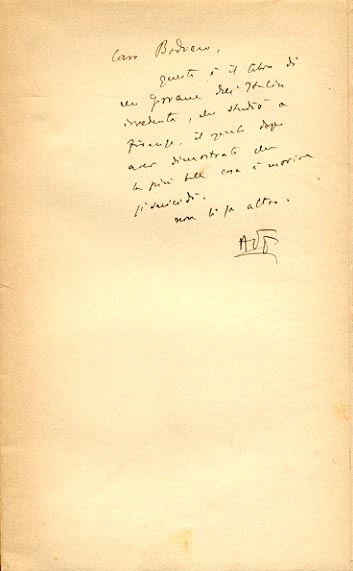 Caro Bodrero,
questo è il libro di
un giovane dell'Italia
irredenta, che studiò a
Firenze, il quale dopo
aver dimostrato che
la più bella cosa è morire
si suicidò.
non ti fa altro.